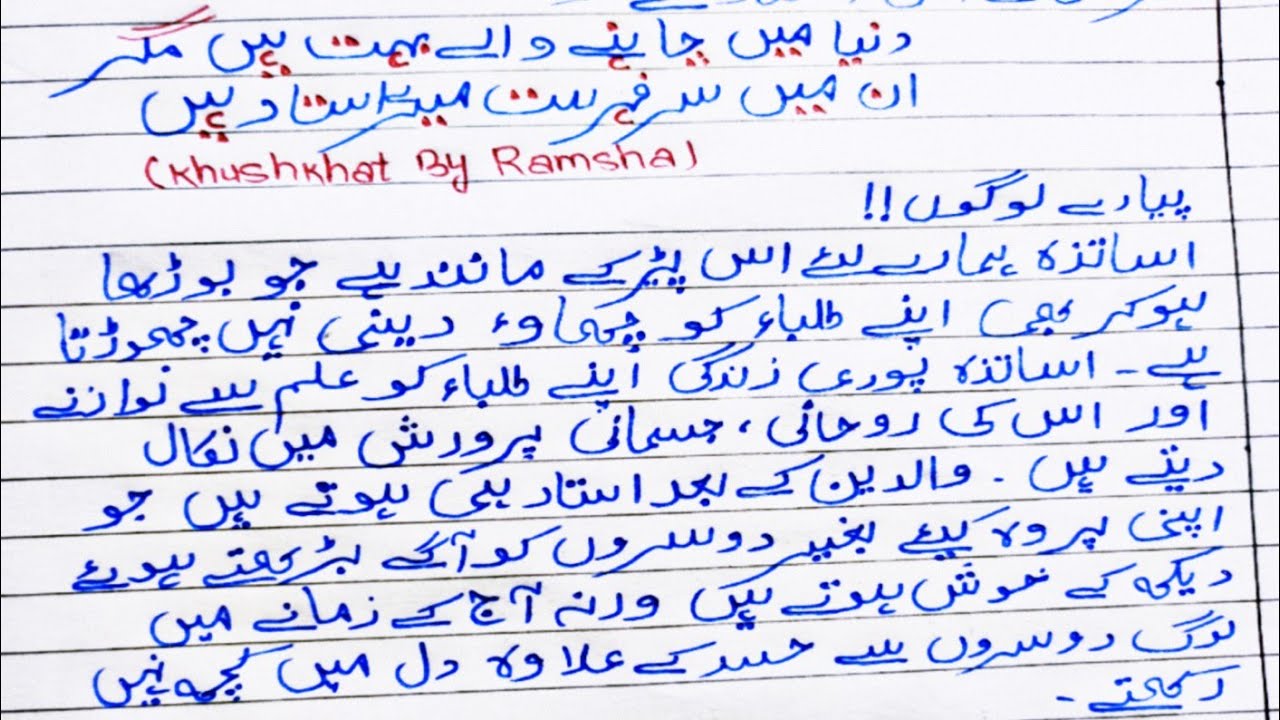 دنیا میں چاہنے والے بہت ہیں مگر
ان میں سر فہرست میرے استاد ہیں
(Khushkhat By Ramsha)
پیارے لوگوں!!
اساتذہ ہمارے لئے اس پیڑ کے مانند ہے جو بوڑھا
ہو کر بھی اپنے طلباء کو چھاوء دینی نہیں چھوڑتا
ہے۔ اساتذہ پوری زندگی اپنے طلباء کو علم سے نوازنے
اور اس کی روحانی، جسمانی پرورش میں نکال
دیتے ہیں۔ والدین کے بعد استاد ہی ہوتے ہیں جو
اپنی پروہ کیئے بغیر دوسروں کو آگے بڑھتے ہوئے
دیکھ کے خوش ہوتے ہیں ورنہ آج کے زمانے میں
لوگ دوسروں سے حسد کے علاوہ دل میں کچھ نہیں
رکھتے۔